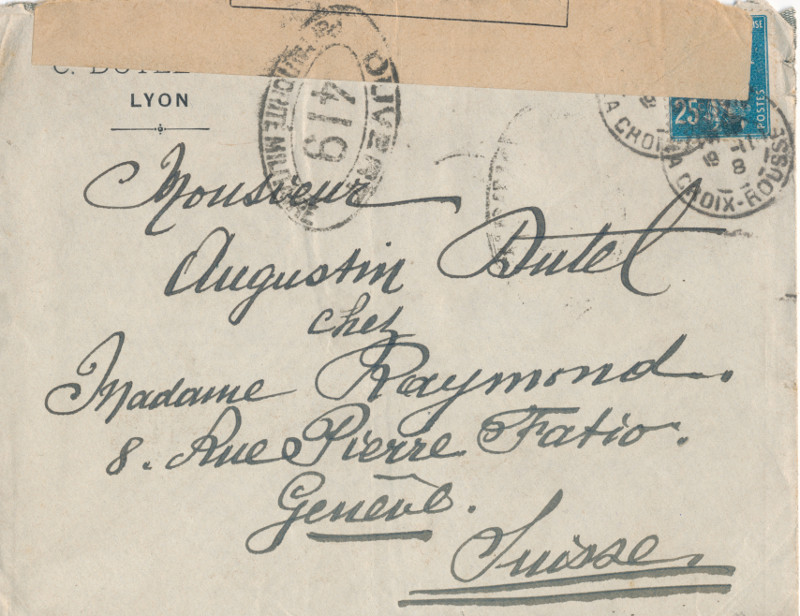 C. DUTEL
LYON
OUVERT
419
25
POSTES
LA CROIX-ROUSSE
Monsieur
Augustin Dutel
chez
Madame Raymond.
8. Rue Pierre Fatio.
Genève.
Suisse.